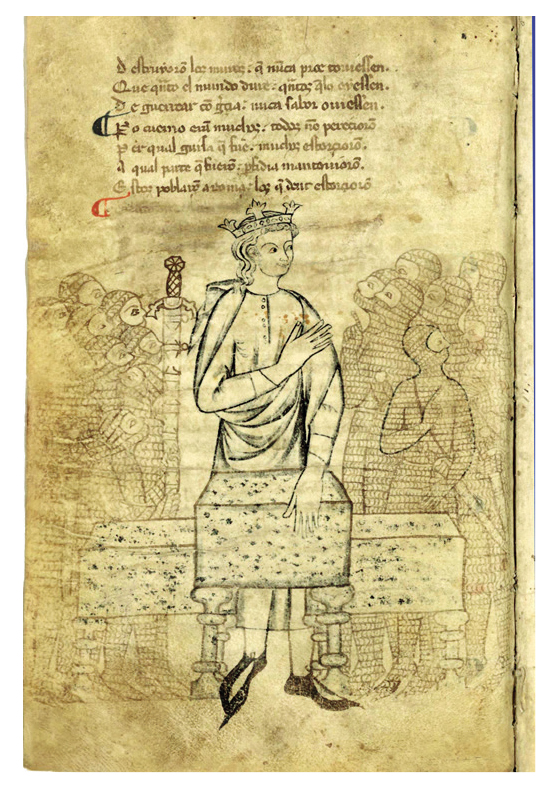 Destruyorõ los muros. q̃ nũca proe touiessen.
Que qñto el mundo dure. qñtos q̃lo oyessen.
De guerrear cõ gr̃a. nuca sabor ouiessen.
Pero cuemo erã muchos. todos nõ pereciorõ
Per qual guisa q̃ fue. muchos estorçiorõ.
A qual parte q̃ fuerõ. p̃fidia mantouiorõ.
Estos poblarõ a roma. los q̃ dent estorçiorõ